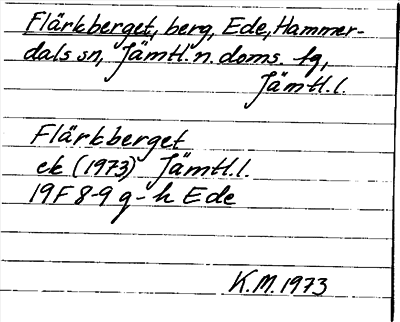 Flärkberget, berg, Ede, Hammer-
dals sn, Jämtl. n. doms. fg,
Jämtl.l.
Flärkberget
ek (1973) Jämtl.l.
19F 8-9 g-h Ede
K.M. 1973